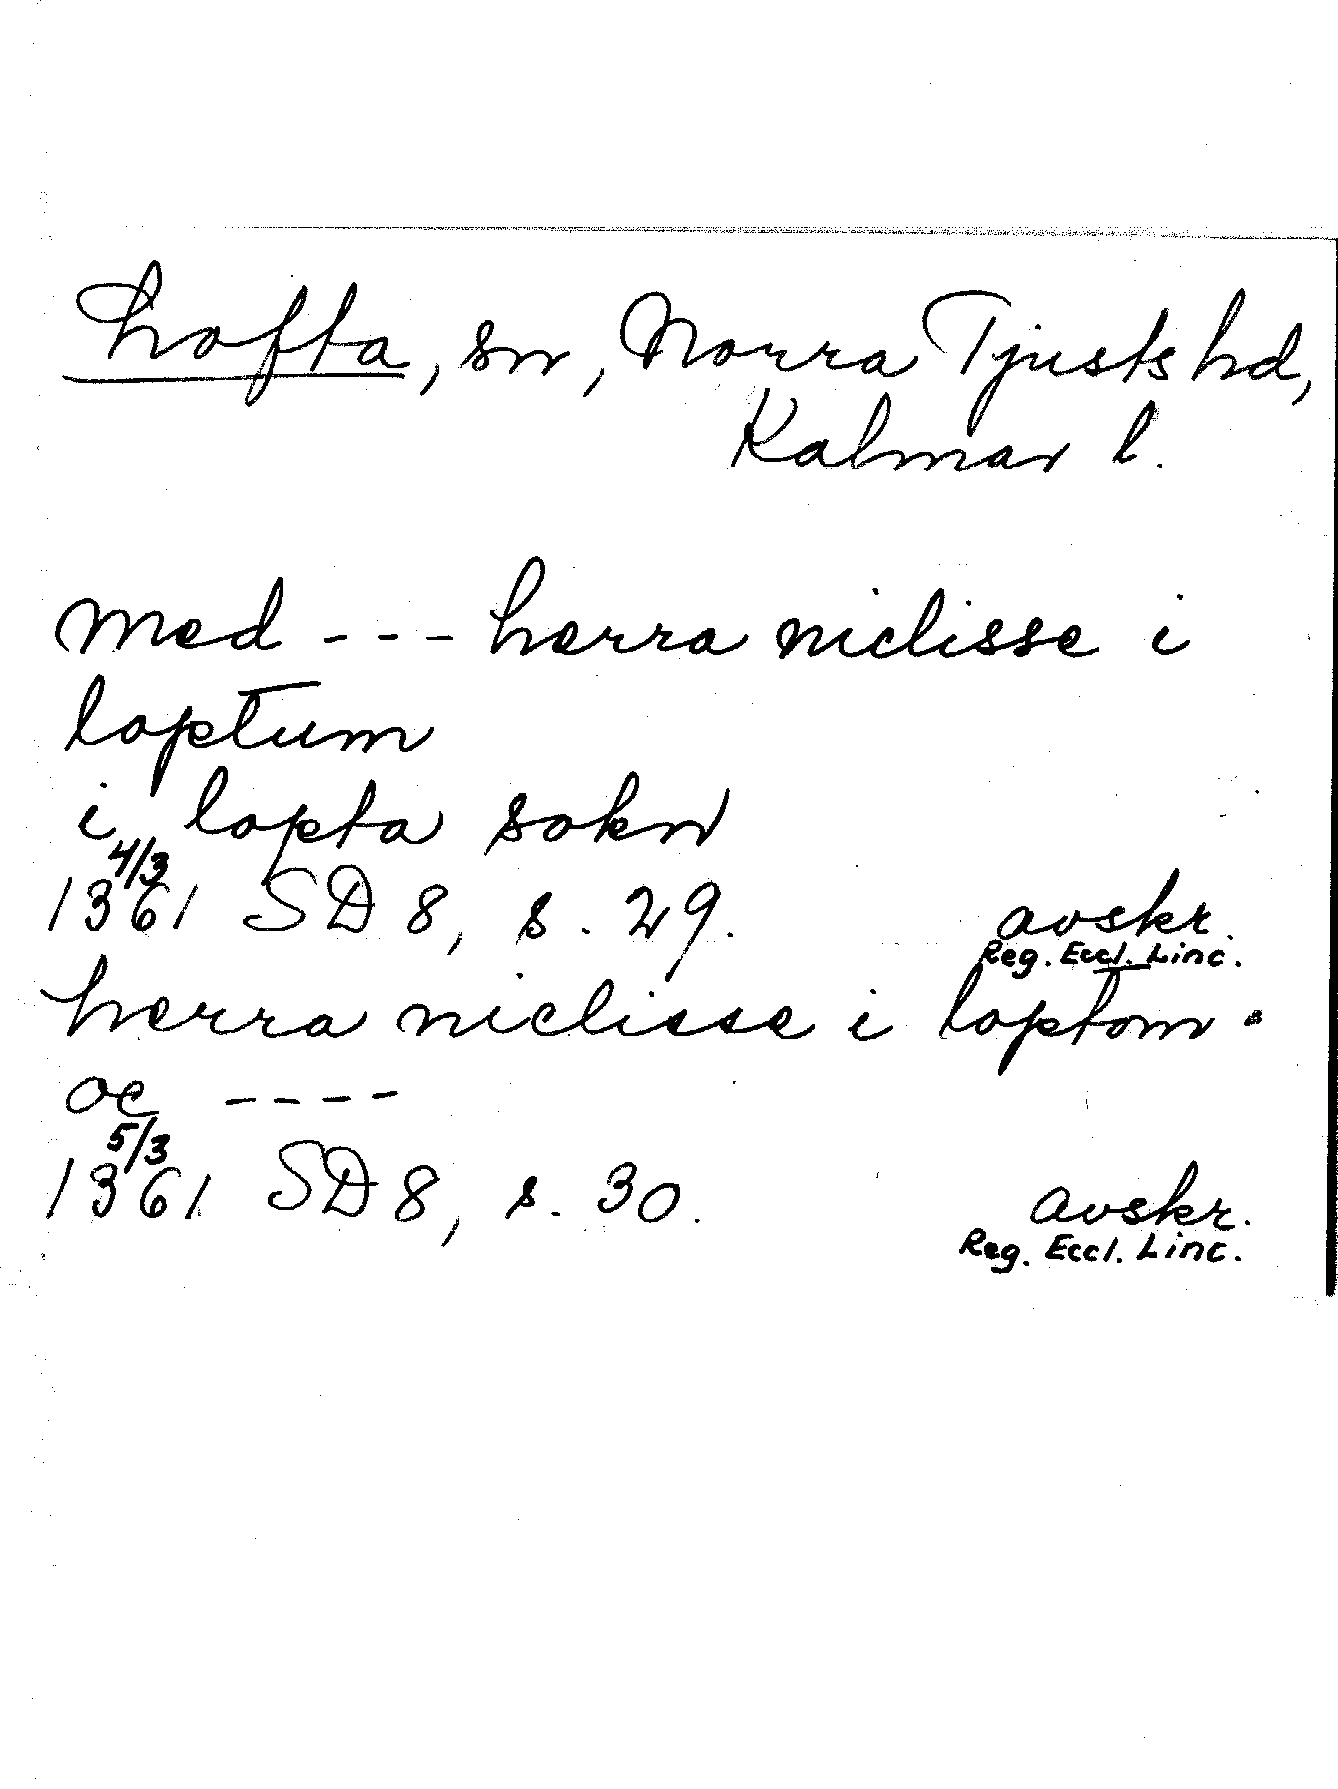 Lofta, sn, Norra Tjusts hd,
Kalmar l.
med --- herra niclisse i
loptum
i lopta sokn
4/3
1361 SD 8, s. 29. avskr.
Reg. Eccl. Linc.
herra niclisse i loptom.
oc ----
5/3
1361 SD 8, s. 30. avskr.
Reg. Eccl. Linc.